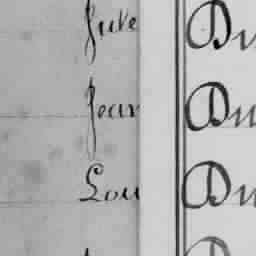 Juve Du
Jean Du
Lou Du